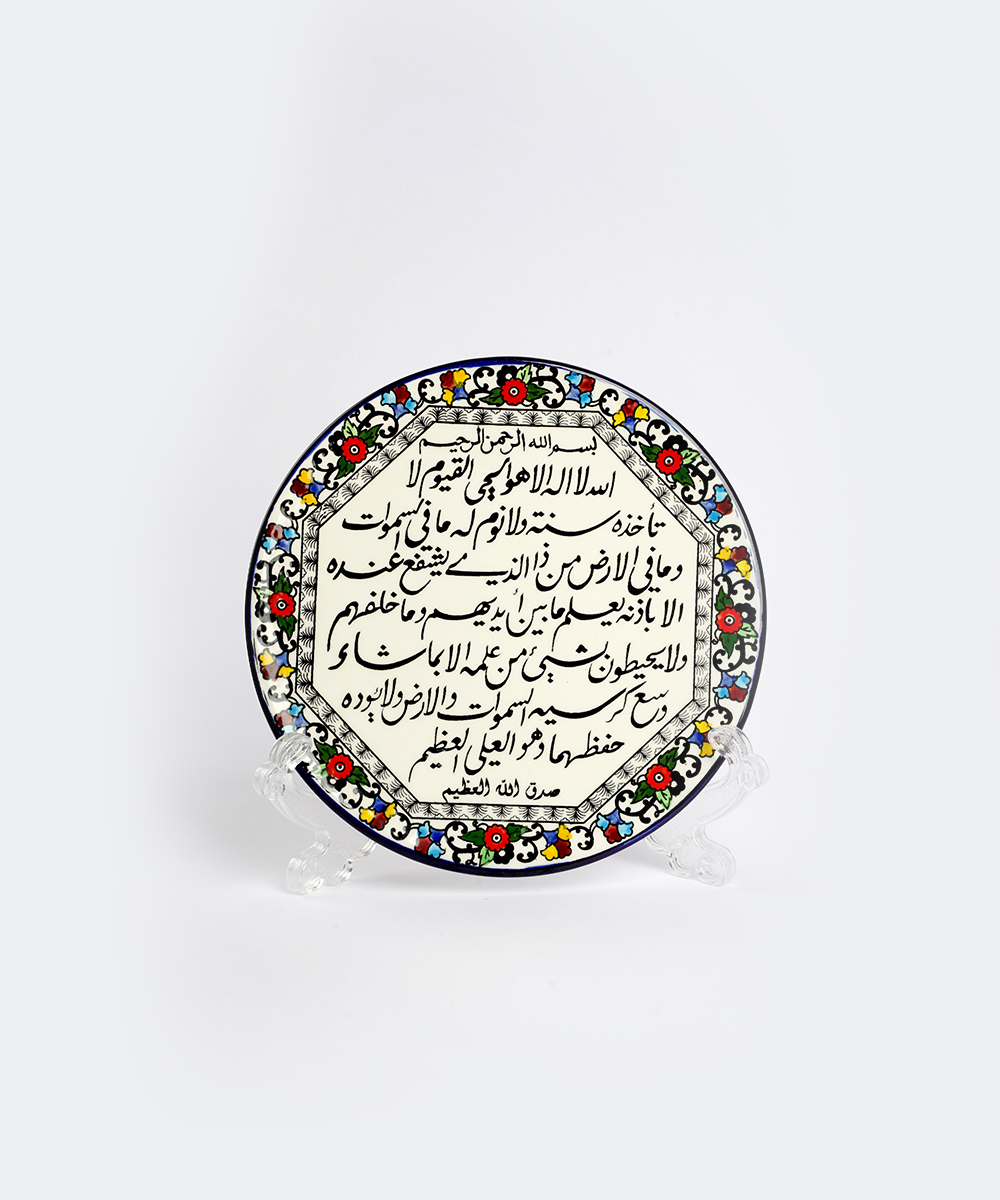 بسم الله الرحمن الرحيم
الله لا اله الا هو الحي القيوم لا
تأخذه سنة ولا نوم له ما في السموات
وما في الارض من ذا الذي يشفع عنده
الا باذنه يعلم ما بين أيديهم وما خلفهم
ولا يحيطون بشيئ من علمه الا بما شاء
وسع كرسيه السموات والارض ولا يؤده
حفظهما وهو العلي العظيم
صدق الله العظيم